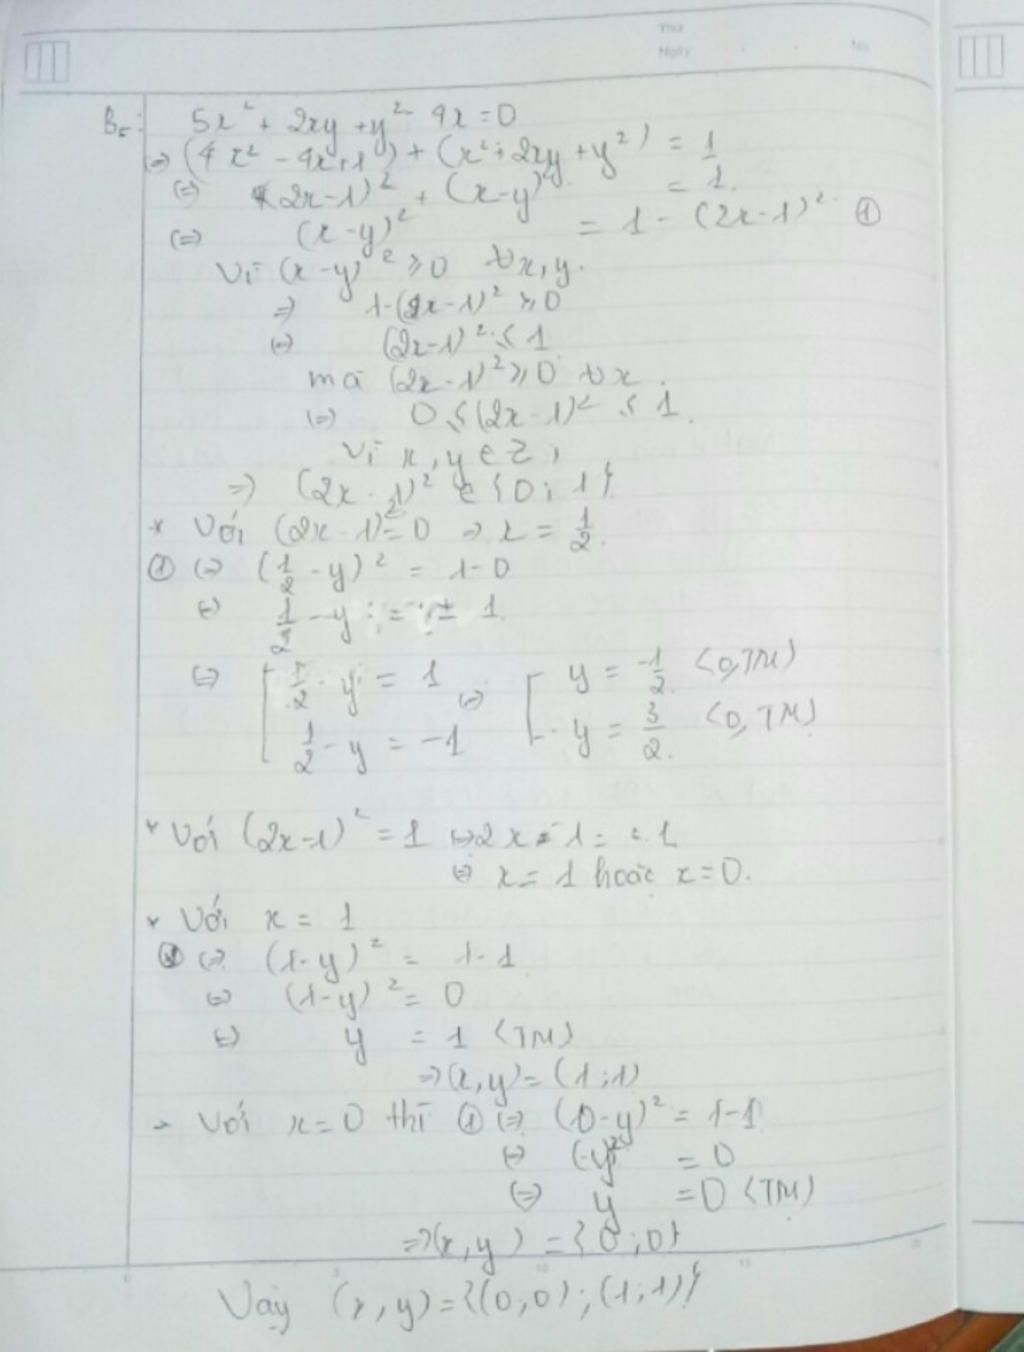 Thứ
Ngày No
B5: 5x² + 2xy + y² - 4x = 0
=> (4x² - 4x + 1) + (x² + 2xy + y²) = 1
<=> (2x-1)² + (x-y)² = 1.
<=> (x-y)² = 1 - (2x-1)² ①
Vì (x-y)² ≥ 0 ∀x,y.
=> 1-(2x-1)² ≥ 0
<=> (2x-1)² ≤ 1
mà (2x-1)² ≥ 0 ∀x.
<=> 0 ≤ (2x-1)² ≤ 1.
Vì x, y ∈ Z;
=> (2x-1)² ∈ {0; 1}.
* Với (2x-1)² = 0 => x = 1/2.
① <=> (1/2 - y)² = 1-0
<=> 1/2 - y = ± 1.
<=> [ 1/2 - y = 1 <=> [ y = -1/2. (0, TM)
1/2 - y = -1 y = 3/2. (0, TM)
* Với (2x-1)² = 1 <=> 2x - 1 = ± 1
<=> x = 1 hoặc x = 0.
* Với x = 1
① <=> (1-y)² = 1-1
<=> (1-y)² = 0
<=> y = 1 (TM)
=> (x,y) = (1;1)
- Với x = 0 thì ① <=> (0-y)² = 1-1
<=> (-y)² = 0
<=> y = 0 (TM)
=> (x,y) = {0;0}
5 10 15 20
Vậy (x,y) = {(0;0);(1;1)}